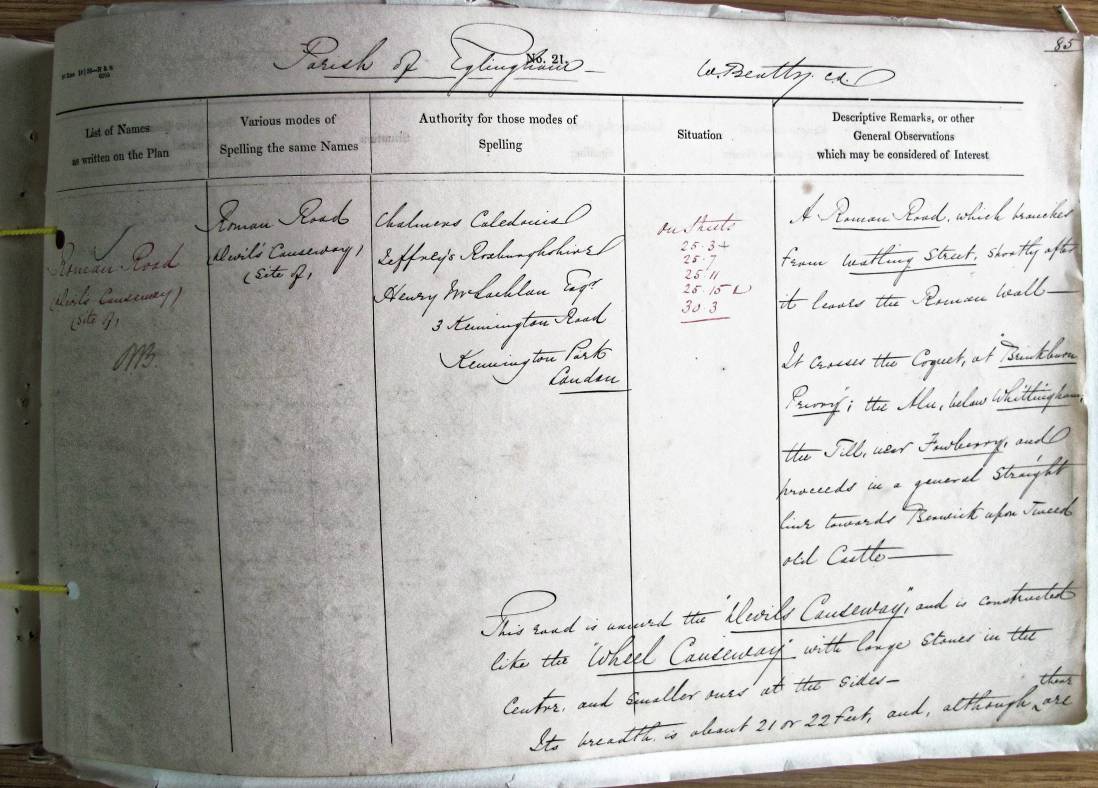 85
Parish of Eglingham
No. 21.
W. Beatty. c.a.
List of Names
as written on the Plan
Various modes of
Spelling the same Names
Authority for those modes of
Spelling
Situation
Descriptive Remarks, or other
General Observations
which may be considered of Interest
Roman Road
(Devil's Causeway)
(Site of)
WB.
Roman Road
(Devil's Causeway)
(Site of)
Chalmers Caledonia
Jeffrey's Roxburghshire
Henry McLachlan Esqr
3 Kennington Road
Kennington Park
London
on Sheets
25.3
25.7
25.11
25.15
30.3
A Roman Road, which branches
from Watling Street, shortly after
it leaves the Roman Wall—
It crosses the Coquet, at "Brinkburn
Priory"; the Aln, below Whittingham;
the Till, near Fowberry, and
proceeds in a general Straight
line towards Berwick upon Tweed
old Castle—
This road is named the "Devils Causeway", and is constructed
like the "Wheel Causeway" with large Stones in the
Centre, and smaller ones at the sides—
Its breadth, is about 21 or 22 feet, and, although there are